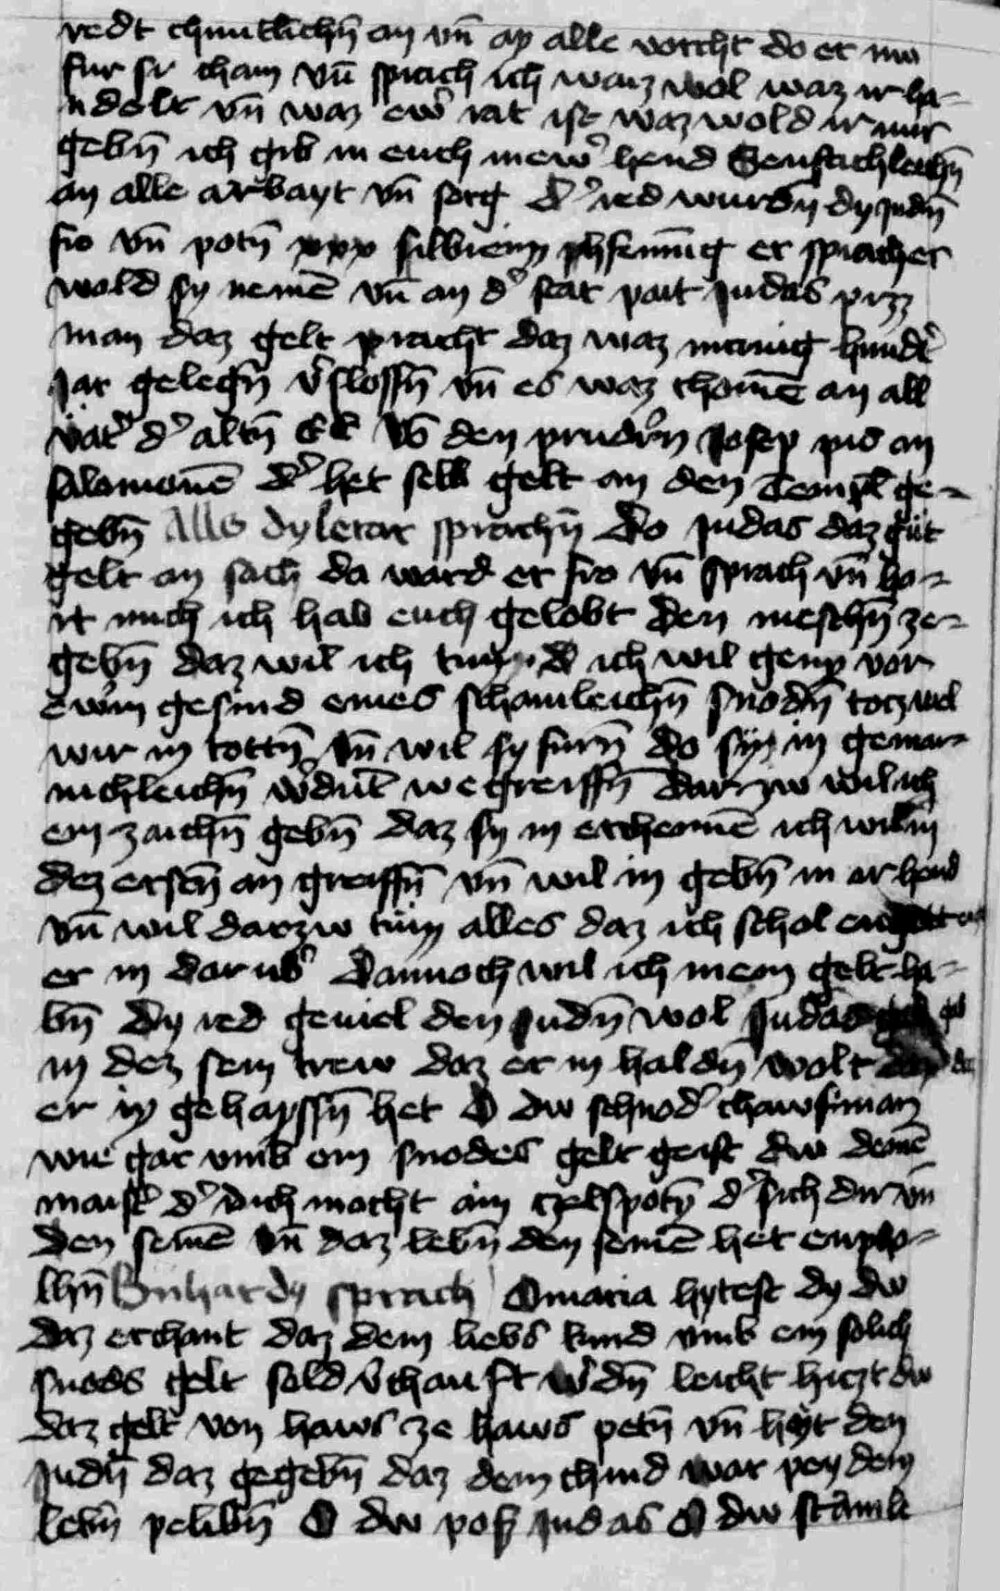 redt chuntlichn̄ an vn̄ an alle vorcht do er nw
fur sy cham vn̄ sprach ich waiz wol waz ir ha-
ndelt vn̄ waz ew̄ rat ist waz wold ir mir
gebn̄ ich gib in euch inew̄ hend Senftichleichn̄
an alle arbayt vn̄ sorg d' red wurdn̄ dy judn̄
fro vn̄ potn̄ xxx silbrein phfenning er sprach er
wold sy nemē vn̄ an d' stat pait Judas piz
man daz gelt pracht daz waz manig hundt'
jar gelegn̄ v'slossn̄ vn̄ es waz chomē an all
vat' d' altn̄ ee vō den prudrn̄ Josep pis an
salamonē d' het selb gelt an den Tempel ge-
gebn̄ Alls dy lerar sprachn̄ do Judas daz gut
gelt an sach da ward er fro vn̄ sprach vn̄ ho-
rt mich ich hab euch gelobt den meschn̄ ze-
gebn̄ daz wil ich tuin ich wil genn vor
ewrm gesind eines schamleichn̄ snodn̄ totz wel
wir in tottn̄ vn̄ wil sy furn̄ do syn in gemai-
nichleichn̄ w'dnt wegreiffn̄ dar zw wil ich
ein zaichn̄ gebn̄ daz sy in erchennē ich wil in
dez erstn̄ an greiffn̄ vn̄ wil in gebn̄ in ir hend
vn̄ wil darzw tuin alles daz ich schol
er in dar ub' dannoch wil ich mein gelt ha-
bn̄ dy red geviel den judn̄ wol Judas gab
in dez sein trew daz er in haldn̄ wolt daz
er in gehayssn̄ het O dw schnod' chawfman
wie gar vmb ein snodes gelt geist dw deinē
maist' d' dich macht ain tzelfpotn̄ d' sich dir vn̄
den seinē vn̄ daz lebn̄ den seinē het enpho-
lhn̄ Bnhardy sprach O maria hytest dy dw
daz erchant daz dein liebs kind vmb ein solich
snods gelt sold v'chauft w'dn̄ leicht hiezt dw
daz gelt von haws ze haws petn̄ vn̄ hyt den
Judn̄ daz gegebn̄ daz dein chind war pey dem
lebn̄ pelibn̄ O dw pos Judas O dw